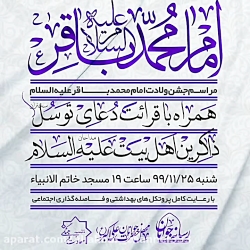 امام محمد باقر
علیه السلام
مراسم جشن ولادت امام محمد باقر علیه السلام
همراه با قرائت دعای توسل
ذاکرین اهل بیت علیه السلام
شنبه ۹۹/۱۱/۲۵ ساعت ۱۹ مسجد خاتم الانبیاء
با رعایت کامل پروتکل های بهداشتی و فاصله گذاری اجتماعی